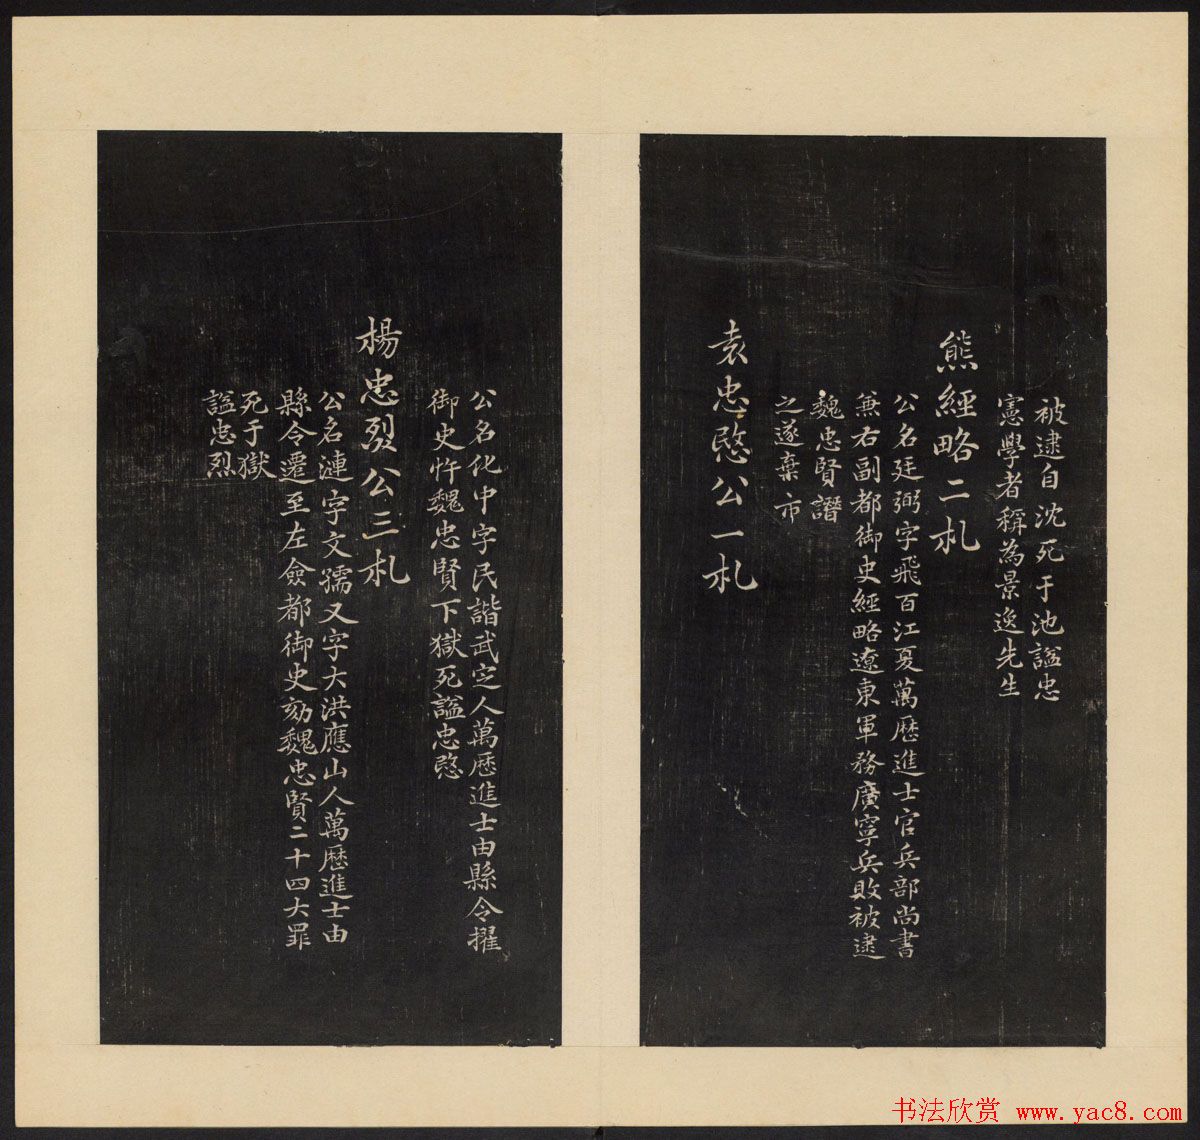 被逮自沈死于池謚忠
憲學者稱為景逸先生
熊經略二札
公名廷弼字飛百江夏萬歷進士官兵部尚書
兼右副都御史經略遼東軍務廣寧兵敗被逮
魏忠賢譖
之遂棄市
袁忠愍公一札
公名化中字民諧武定人萬歷進士由縣令擢
御史忤魏忠賢下獄死謚忠愍
楊忠烈公三札
公名漣字文孺又字大洪應山人萬歷進士由
縣令遷至左僉都御史劾魏忠賢二十四大罪
死于獄
謚忠烈
书法欣赏 www.yac8.com